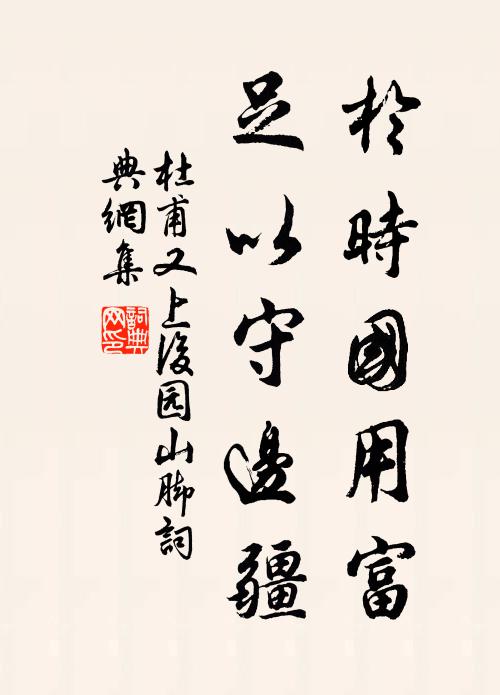 於時國用富
足以守邊疆
杜甫又上後园山脚詞
典網集
詞典
网印